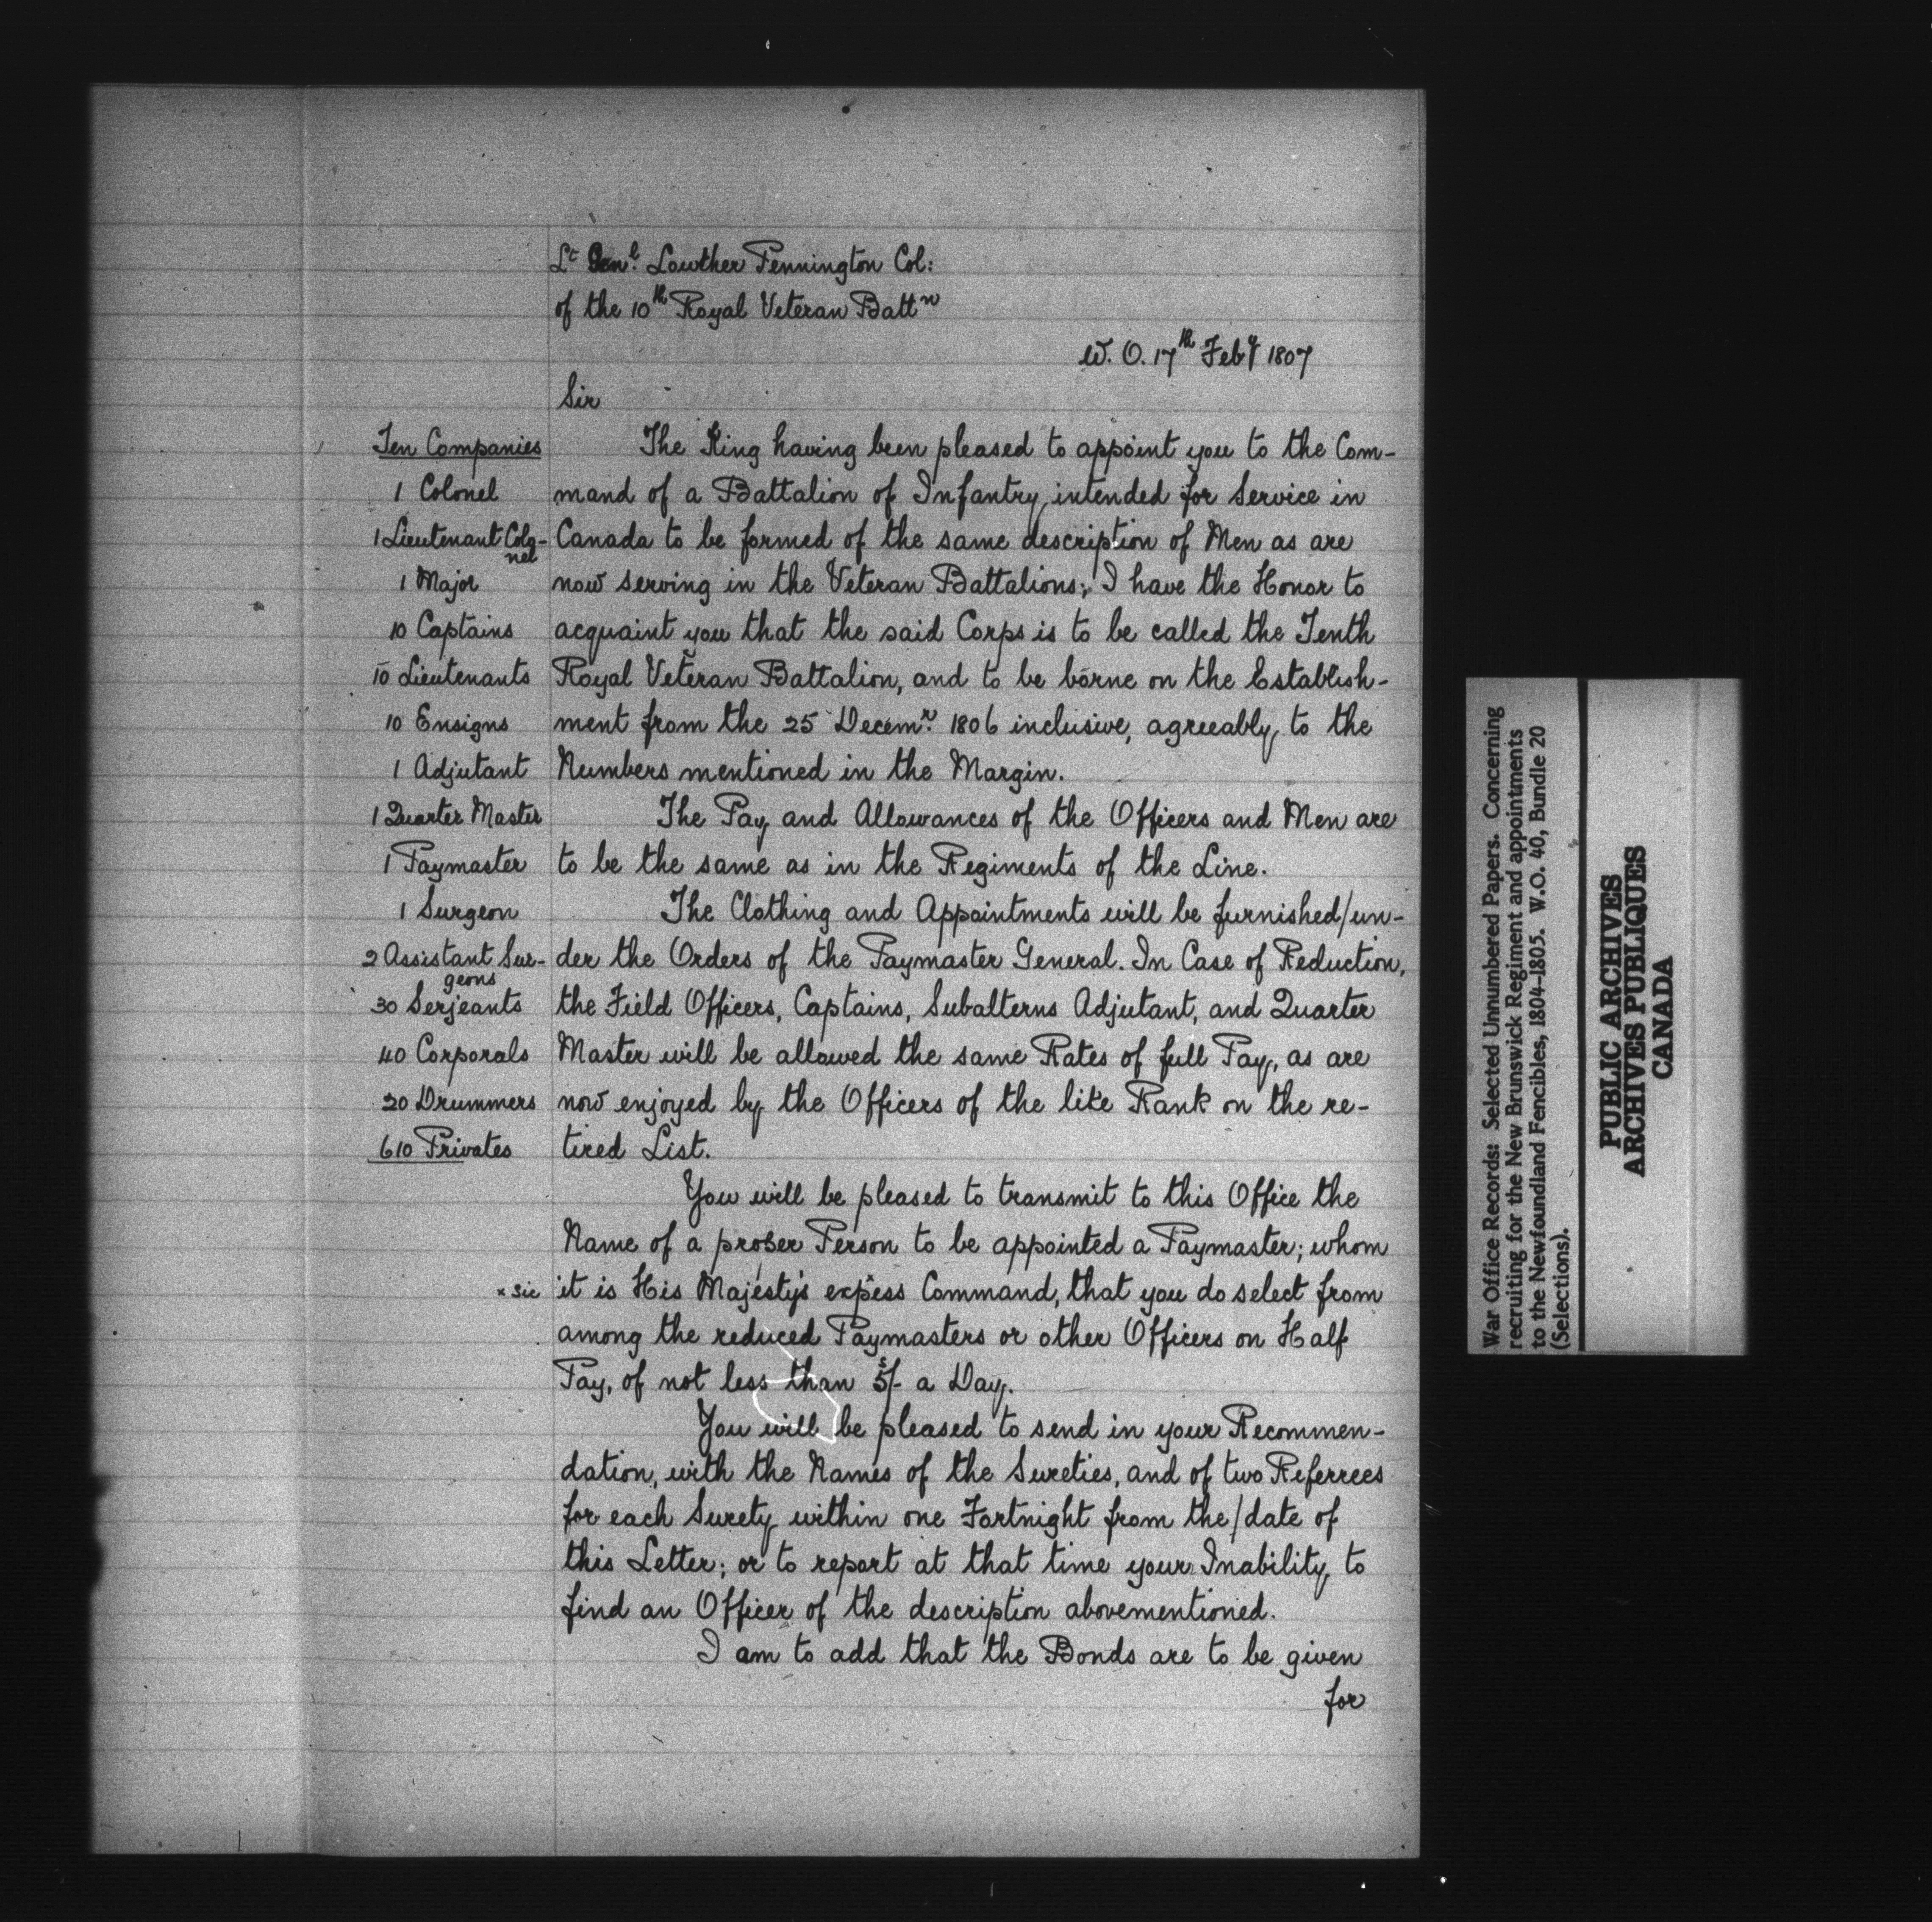 Lt Genl. Lowther Pennington Col:
of the 10th Royal Veteran Battn
W. O. 17th Feby 1807
Sir
Ten Companies
1 Colonel
1 Lieutenant Colo-
nel
1 Major
10 Captains
10 Lieutenants
10 Ensigns
1 Adjutant
1 Quarter Master
1 Paymaster
1 Surgeon
2 Assistant Sur-
geons
30 Serjeants
40 Corporals
20 Drummers
610 Privates
The King having been pleased to appoint you to the Com-
mand of a Battalion of Infantry intended for Service in
Canada to be formed of the same description of Men as are
now serving in the Veteran Battalions; I have the Honor to
acquaint you that the said Corps is to be called the Tenth
Royal Veteran Battalion, and to be borne on the Establish-
ment from the 25 Decemr. 1806 inclusive, agreeably to the
Numbers mentioned in the Margin.
The Pay and Allowances of the Officers and Men are
to be the same as in the Regiments of the Line.
The Clothing and Appointments will be furnished/un-
der the Orders of the Paymaster General. In Case of Reduction,
the Field Officers, Captains, Subalterns Adjutant, and Quarter
Master will be allowed the same Rates of full Pay, as are
now enjoyed by the Officers of the like Rank on the re-
tired List.
You will be pleased to transmit to this Office the
Name of a proper Person to be appointed a Paymaster; whom
x sic
it is His Majesty's expxess Command, that you do select from
among the reduced Paymasters or other Officers on Half
Pay, of not less than 5/- a Day.
You will be pleased to send in your Recommen-
dation, with the Names of the Sureties, and of two Referrees
for each Surety within one Fortnight from the/date of
this Letter; or to report at that time your Inability to
find an Officer of the description abovementioned.
I am to add that the Bonds are to be given
for
War Office Records: Selected Unnumbered Papers. Concerning
recruiting for the New Brunswick Regiment and appointments
to the Newfoundland Fencibles, 1804-1805. W.O. 40, Bundle 20
(Selections).
PUBLIC ARCHIVES
ARCHIVES PUBLIQUES
CANADA